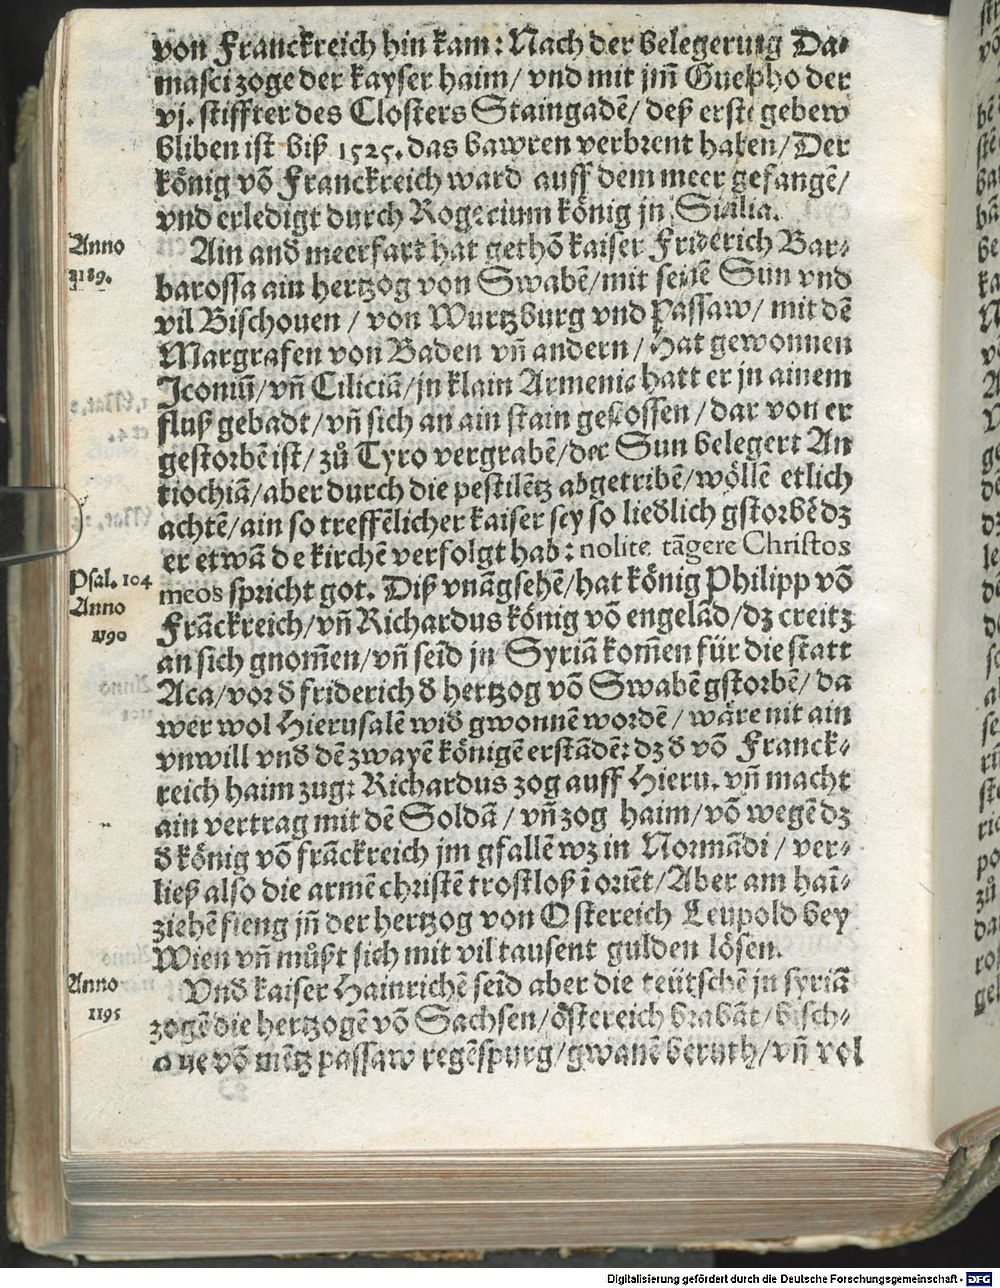 von Franckreich hin kam: Nach der belegerung Da⸗
masci zoge der kayser haim/ vnd mit jm̃ Guelpho der
vj. stiffter des Closters Staingadẽ/ deß erst gebew
bliben ist biß 1525. das bawren verbrent haben/ Der
kônig võ Franckreich ward auff dem meer gefangẽ/
vnd erledigt durch Rogerium kônig jn Sicilia.
Anno
1189.
Ain and meerfart hat gethõ kaiser Friderich Bar⸗
barossa ain hertzog von Swabẽ/ mit seinẽ Sun vnd
vil Bischouen / von Wurtzburg vnd Passaw/ mit dẽ
Margrafen von Baden vñ andern / Hat gewonnen
Iconiũ/ vñ Ciliciã/ jn klain Armenie hatt er jn ainem
fluß gebadt/ vñ sich an ain stain gestossen / dar von er
gestorbẽ ist/ zů Tyro vergrabẽ/ der Sun belegert An
tiochiã/ aber durch die pestilẽtz abgetribẽ/ wôllẽ etlich
achtẽ/ ain so treffẽlicher kaiser sey so liedlich gstorbẽ dz
er etwã de kirchẽ verfolgt hab: nolite tãgere Christos
Psal. 104
meos spricht got. Diß vnãgsehẽ/ hat kônig Philipp võ
Anno
1190
Frãckreich/ vñ Richardus kônig võ engelãd/ dz creitz
an sich gnom̃en/ vñ seĩd jn Syriã kom̃en für die statt
Aca/ vor d̕ friderich d̕ hertzog võ Swabẽ gstorbẽ/ da
wer wol Hierusalẽ wid̕ gwonnẽ wordẽ / wäre nit ain
vnwill vnd̕ dẽ zwayẽ kônigẽ erstãdẽ: dz d̕ võ Franck⸗
reich haim zug: Richardus zog auff Hieru. vñ macht
ain vertrag mit dẽ Soldã / vñ zog haim/ võ wegẽ dz
d̕ kônig võ frãckreich jm gfallẽ wz in Normãdi / ver⸗
ließ also die armẽ christẽ trostloß ĩ oriẽt/ Aber am haĩ⸗
ziehẽ fieng jñ der hertzog von Ostereich Leupold bey
Wien vñ můßt sich mit vil tausent gulden lôsen.
Anno
1195
Vnd̕ kaiser Hainrichẽ seĩd aber die teütschẽ jn syriã
zogẽ die hertzogẽ võ Sachsen/ ôstereich brabãt/ bisch⸗
oue võ mẽtz passaw regẽspurg/ gwanẽ beruth/ vñ vol
Digitalisierung gefördert durch die Deutsche Forschungsgemeinschaft - DFG